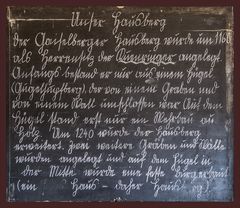 Unser Hausberg
der Gaiselberger Hausberg wurde um 1160
als Herrensitz der Kuenringer angelegt.
Anfangs bestand er nur aus einem Hügel
(Kugelsegment) der von einem Graben und
von einem Wall umschlossen war. Auf dem
Hügel stand erst nur ein Wehrbau aus
Holz. Um 1240 wurde der Hausberg
erweitert, zwei weitere Gräben und Wälle
wurden angelegt und auf dem Hügel in
der Mitte wurde eine feste Burg erbaut
(ein Haus - daher Haus